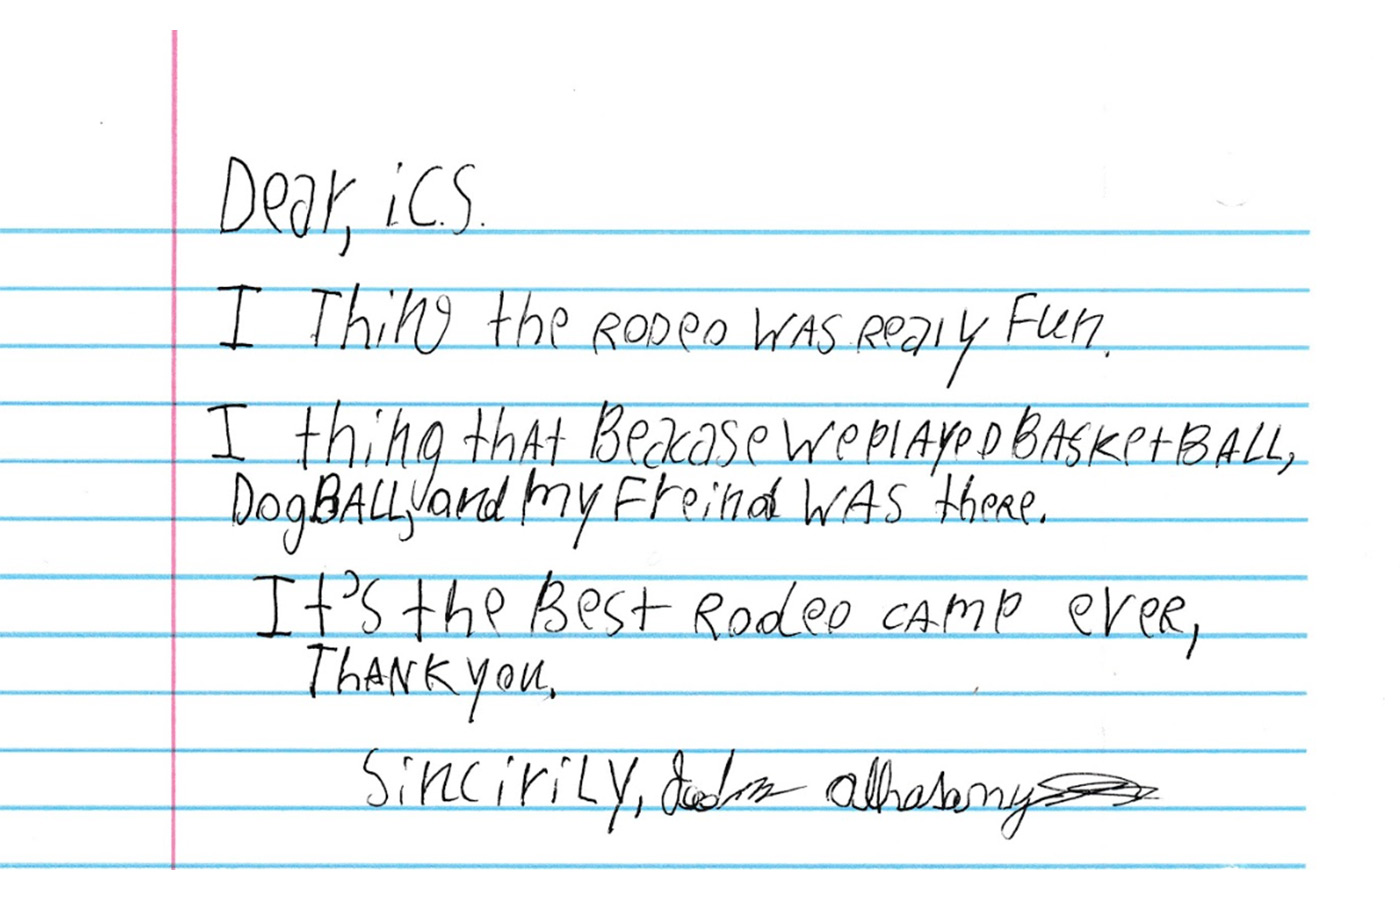 Dear, i.C.S.
I Thing the RODEO WAS Realy Fun.
I thing thAt Becacase We PLAYeD BASKetBALL,
DogBALL, and my Freind WAS there.
It's the Best Rodeo CAMP ever,
ThANK you.
Sincirily, alhasamy